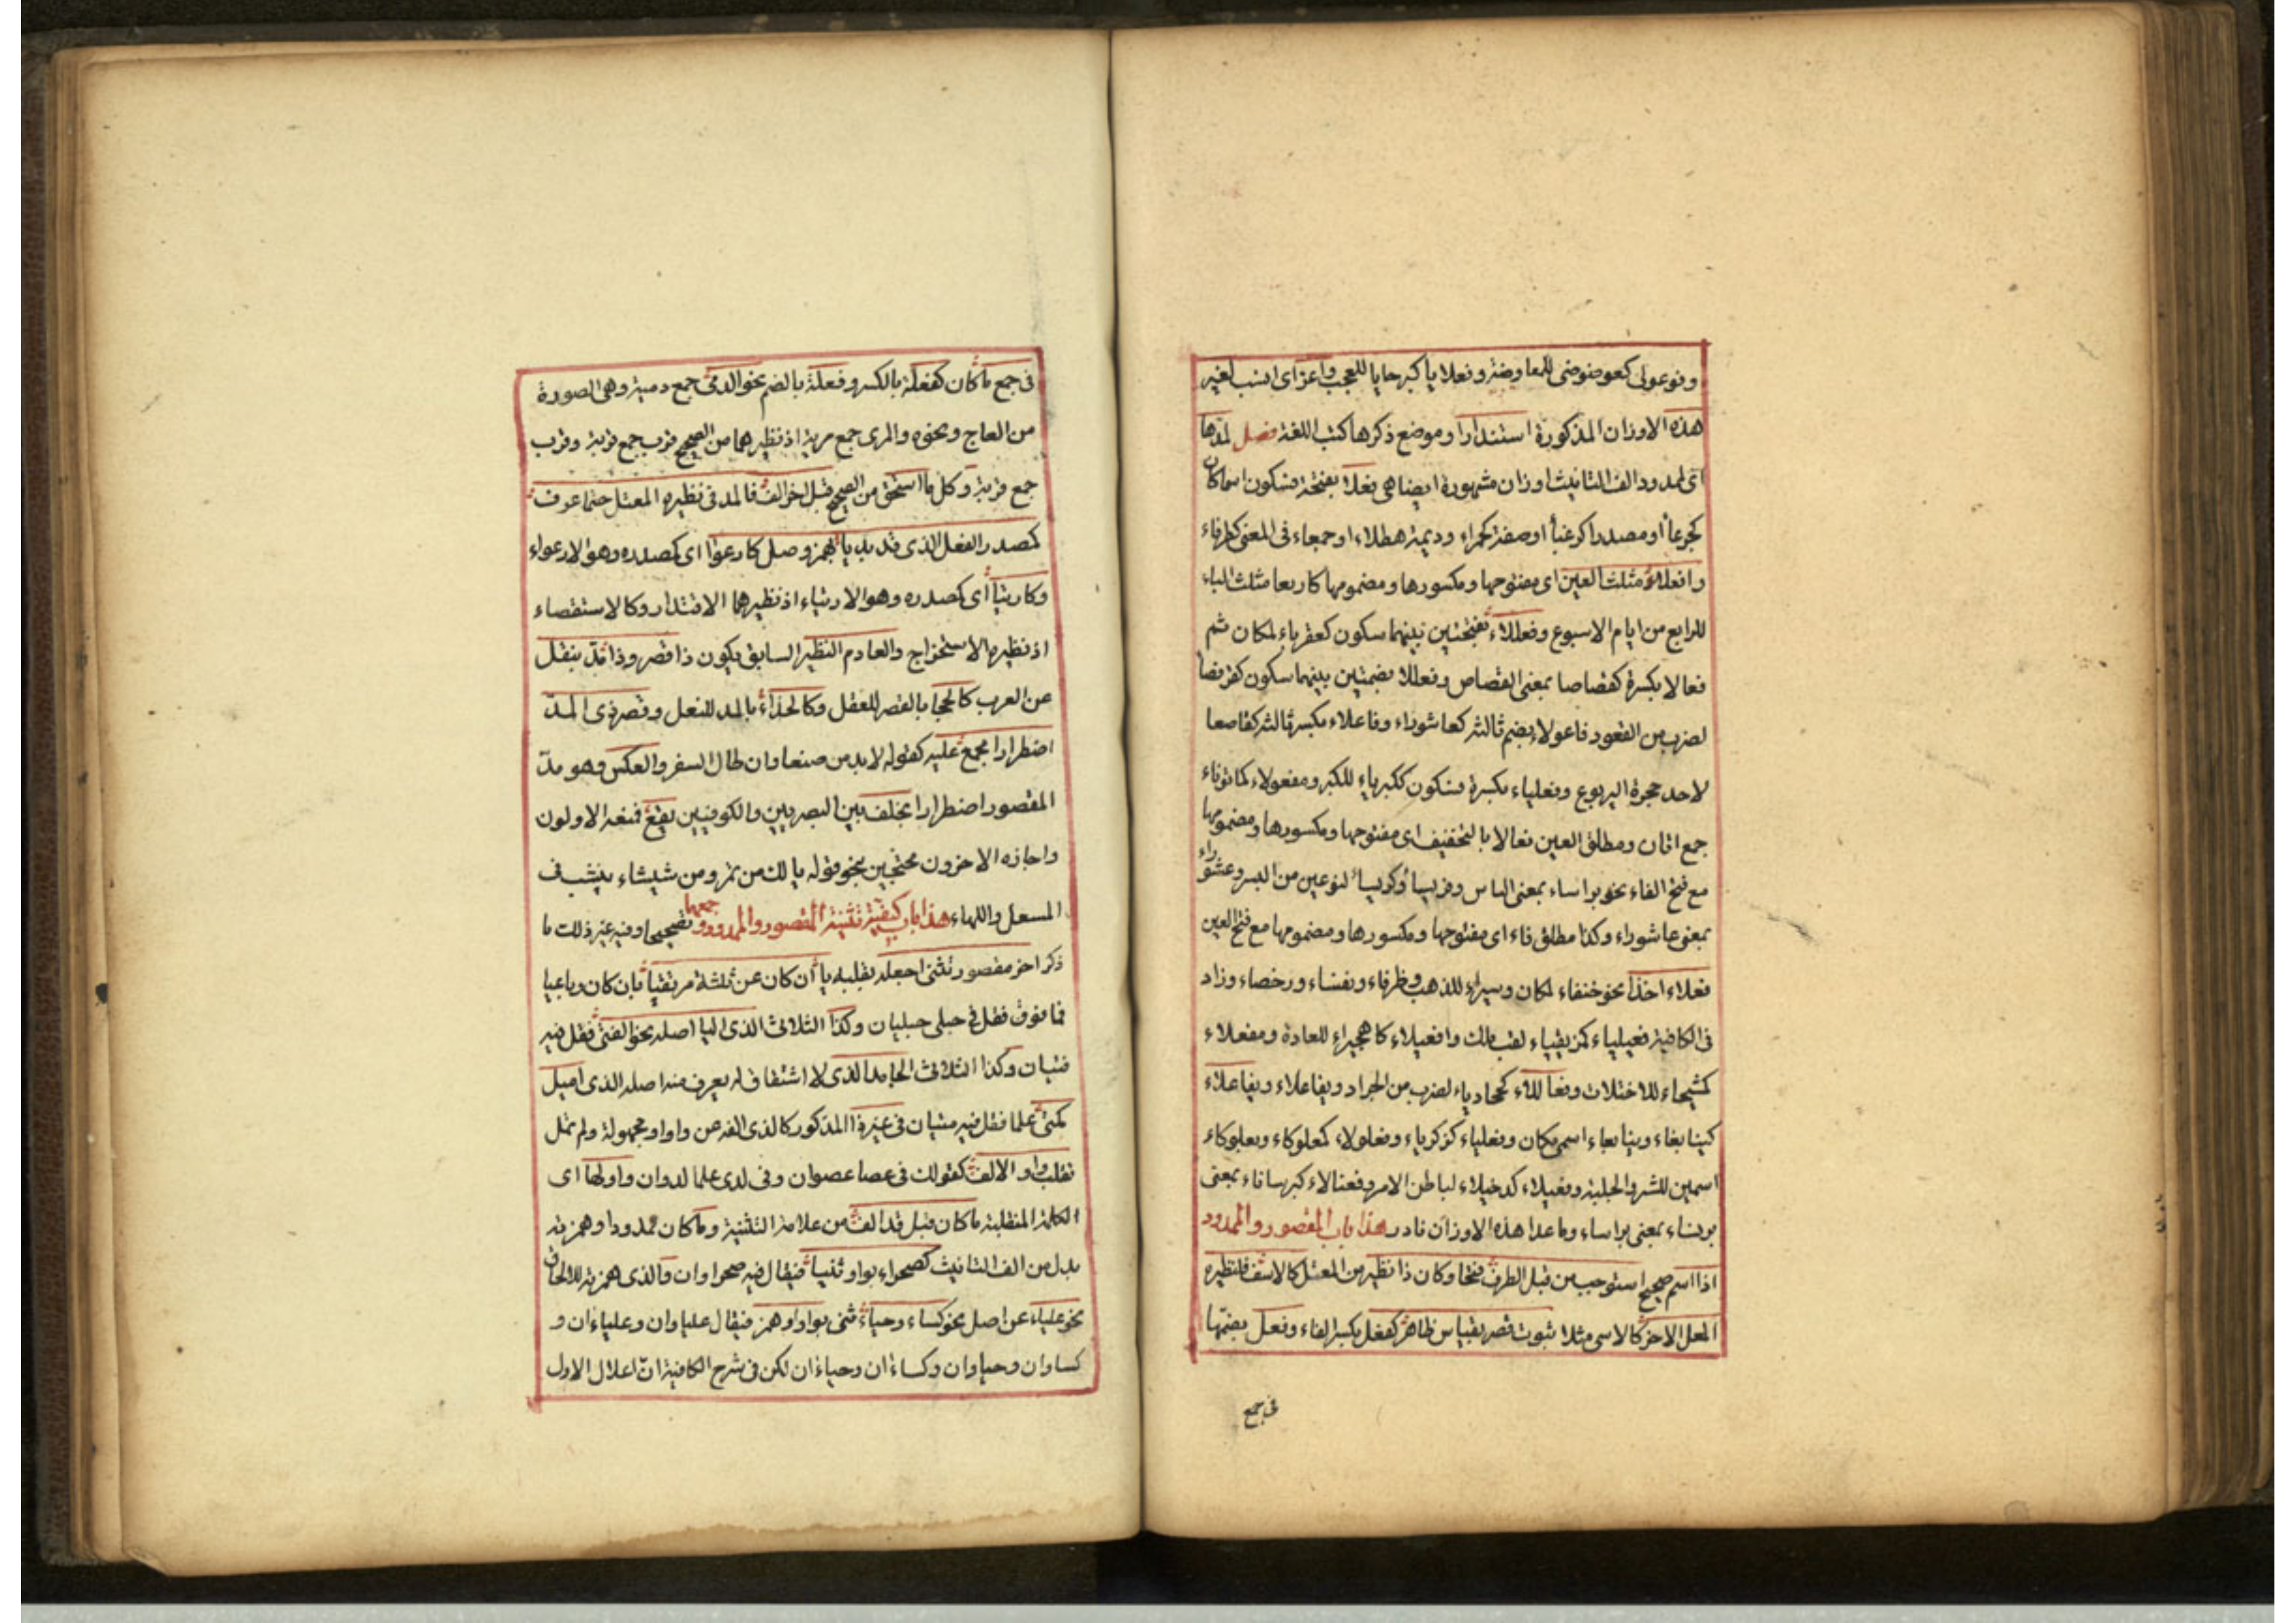 وفوعولى كفوضوضى للمفاوضة وفعلايا كبرحايا للعجب واعز اى انسب لغير
هذه الاوزان المذكورة استندارا وموضع ذكرها كتب اللغة فصل لمدها
اى لممدود الف التانيث اوزان مشهورة ايضا هى فعلاء بفتحة فسكون اسما كان
كجرعاأ او مصدرا كرغباأ او صفة كحمراء وديمة هطلاء او جمعاء فى المعنى كطرفاء
وافعلاء مثلث العين اى مفتوحها ومكسورها ومضمومها كاربعا مثلث الباء
للرابع من ايام الاسبوع وفعللاء بفتحتين بينهما سكون كعقرباء لمكان ثم
فعالا بكسرة كقصاصا بمعنى القصاص وفعللا بضمتين بينهما سكون كقرفصا
لضرب من القعود فاعولاء بضم ثالثه كعاشوراء وفاعلاء بكسر ثالثه كقاصعا
لاحد حجرة اليربوع وفعلياء بكسرة فسكون ككبرياء للكبر ومفعولاء كماتوناء
جمع اتان ومطلق العين فعالا بالتخفيف اى مفتوحها ومكسورها ومضمومها
مع فتح الفاء نحو براساء بمعنى الناس وقريساأ وكريساأ لنوعين من البسر وعشوراء
بمعنى عاشوراء وكذا مطلق فاء اى مفتوحها ومكسورها ومضمومها مع فتح العين
فعلاء اخذا نحو خنفاء لمكان وسيراء للذهب وظرفاء ونفساء ورخصاء وزاد
فى الكافية فعيلياء كمزيقياء لقب ملك وافعيلاء كاهجيراء للعادة ومفعلاء
كمشيحاء للاختلاط وفعاللاء كجخادباء لضرب من الجراد ويفاعلاء ويفاعلاء
كينابغاء وينابعاء اسمى مكان وفعلياء كزكرياء وفعلولاء كمعلوكاء وبعلوكاء
اسمين للشر والجلبة وفعيلاء كدخيلاء لباطن الامر وفعنالاء كبرساناء بمعنى
برنساء بمعنى براساء وماعدا هذه الاوزان نادر هذا باب المقصور والممدود
اذا اسم صحيح استوجب من قبل الطرف فتحا وكان ذا نظير من المعتل كالاسف فلنظيره
المعل الاخر كالاسى مثلا ثبوت قصر بقياس ظاهر كفعل بكسر الفاء وفعل بضمها
فى جمع
فى جمع ما كان كفعلة بالكسر وفعلة بالضم نحو الدمى جمع دمية وهى الصورة
من العاج ونحوه والمرى جمع مرية اذ نظيرهما من الصحيح قرب جمع قربة وقرب
جمع قربة وكل ما استحق من الصحيح قبل اخر الف فالمد فى نظيره المعتل حتما عرف
كمصدر الفعل الذى قد بدئ بأ بهمز وصل كارعوا اى كمصدره وهو الارعواء
وكارتيأ اى كمصدره وهو الارتياء اذ نظيرهما الاقتدار وكالاستقصاء
اذ نظيره الاستخراج والعادم النظير السابق يكون ذا قصر وذا مد بنقل
عن العرب كالحجا بالقصر للعقل وكالحذاء بالمد للنعل وقصر ذى المد
اضطرارا مجمع عليه كقوله لا بد من صنعا وان طال السفر والعكس وهو مد
المقصور اضطرارا بخلف بين البصريين والكوفيين يقع فمنعه الاولون
واجازه الاخرون محتجين بنحو قوله يا لك من تمر ومن شيشاء ينشب فى
المسعل واللهاء هذا باب كيفية تثنية المقصور والممدود وجمعهما تصحيحا وفيه غير ذلك ما
ذكر اخر مقصور تثنى اجعله بقلبه يا ان كان عن ثلثة مرتقيا بان كان رباعيا
فما فوق فقل فى حبلى حبليان وكذا الثلاثى الذى اليا اصله نحو الفتى فقل فيه
فتيان وكذا الثلاثى الجامد الذى لا اشتقاق له يعرف منه اصله الذى اميل
كمتى علما فقل فيه متيان فى غير ذا المذكور كالذى الفه عن واو او مجهولة ولم تمل
تقلب واوا الالف كقولك فى عصا عصوان وفى لدى علما لدوان واولها اى
الكلمة المنقلبة ما كان قبل قد الف من علامة التثنية وما كان ممدودا وهمزته
بدل من الف التانيث كصحراء بواو ثنيا فيقال فيه صحراوان والذى همزته للالحاق
نحو علباء عن اصل نحو كساء وحياء ثنى بواو او همز فيقال علباوان وعلباءان و
كساوان وحياوان وكساءان وحياءان لكن فى شرح الكافية ان اعلال الاول